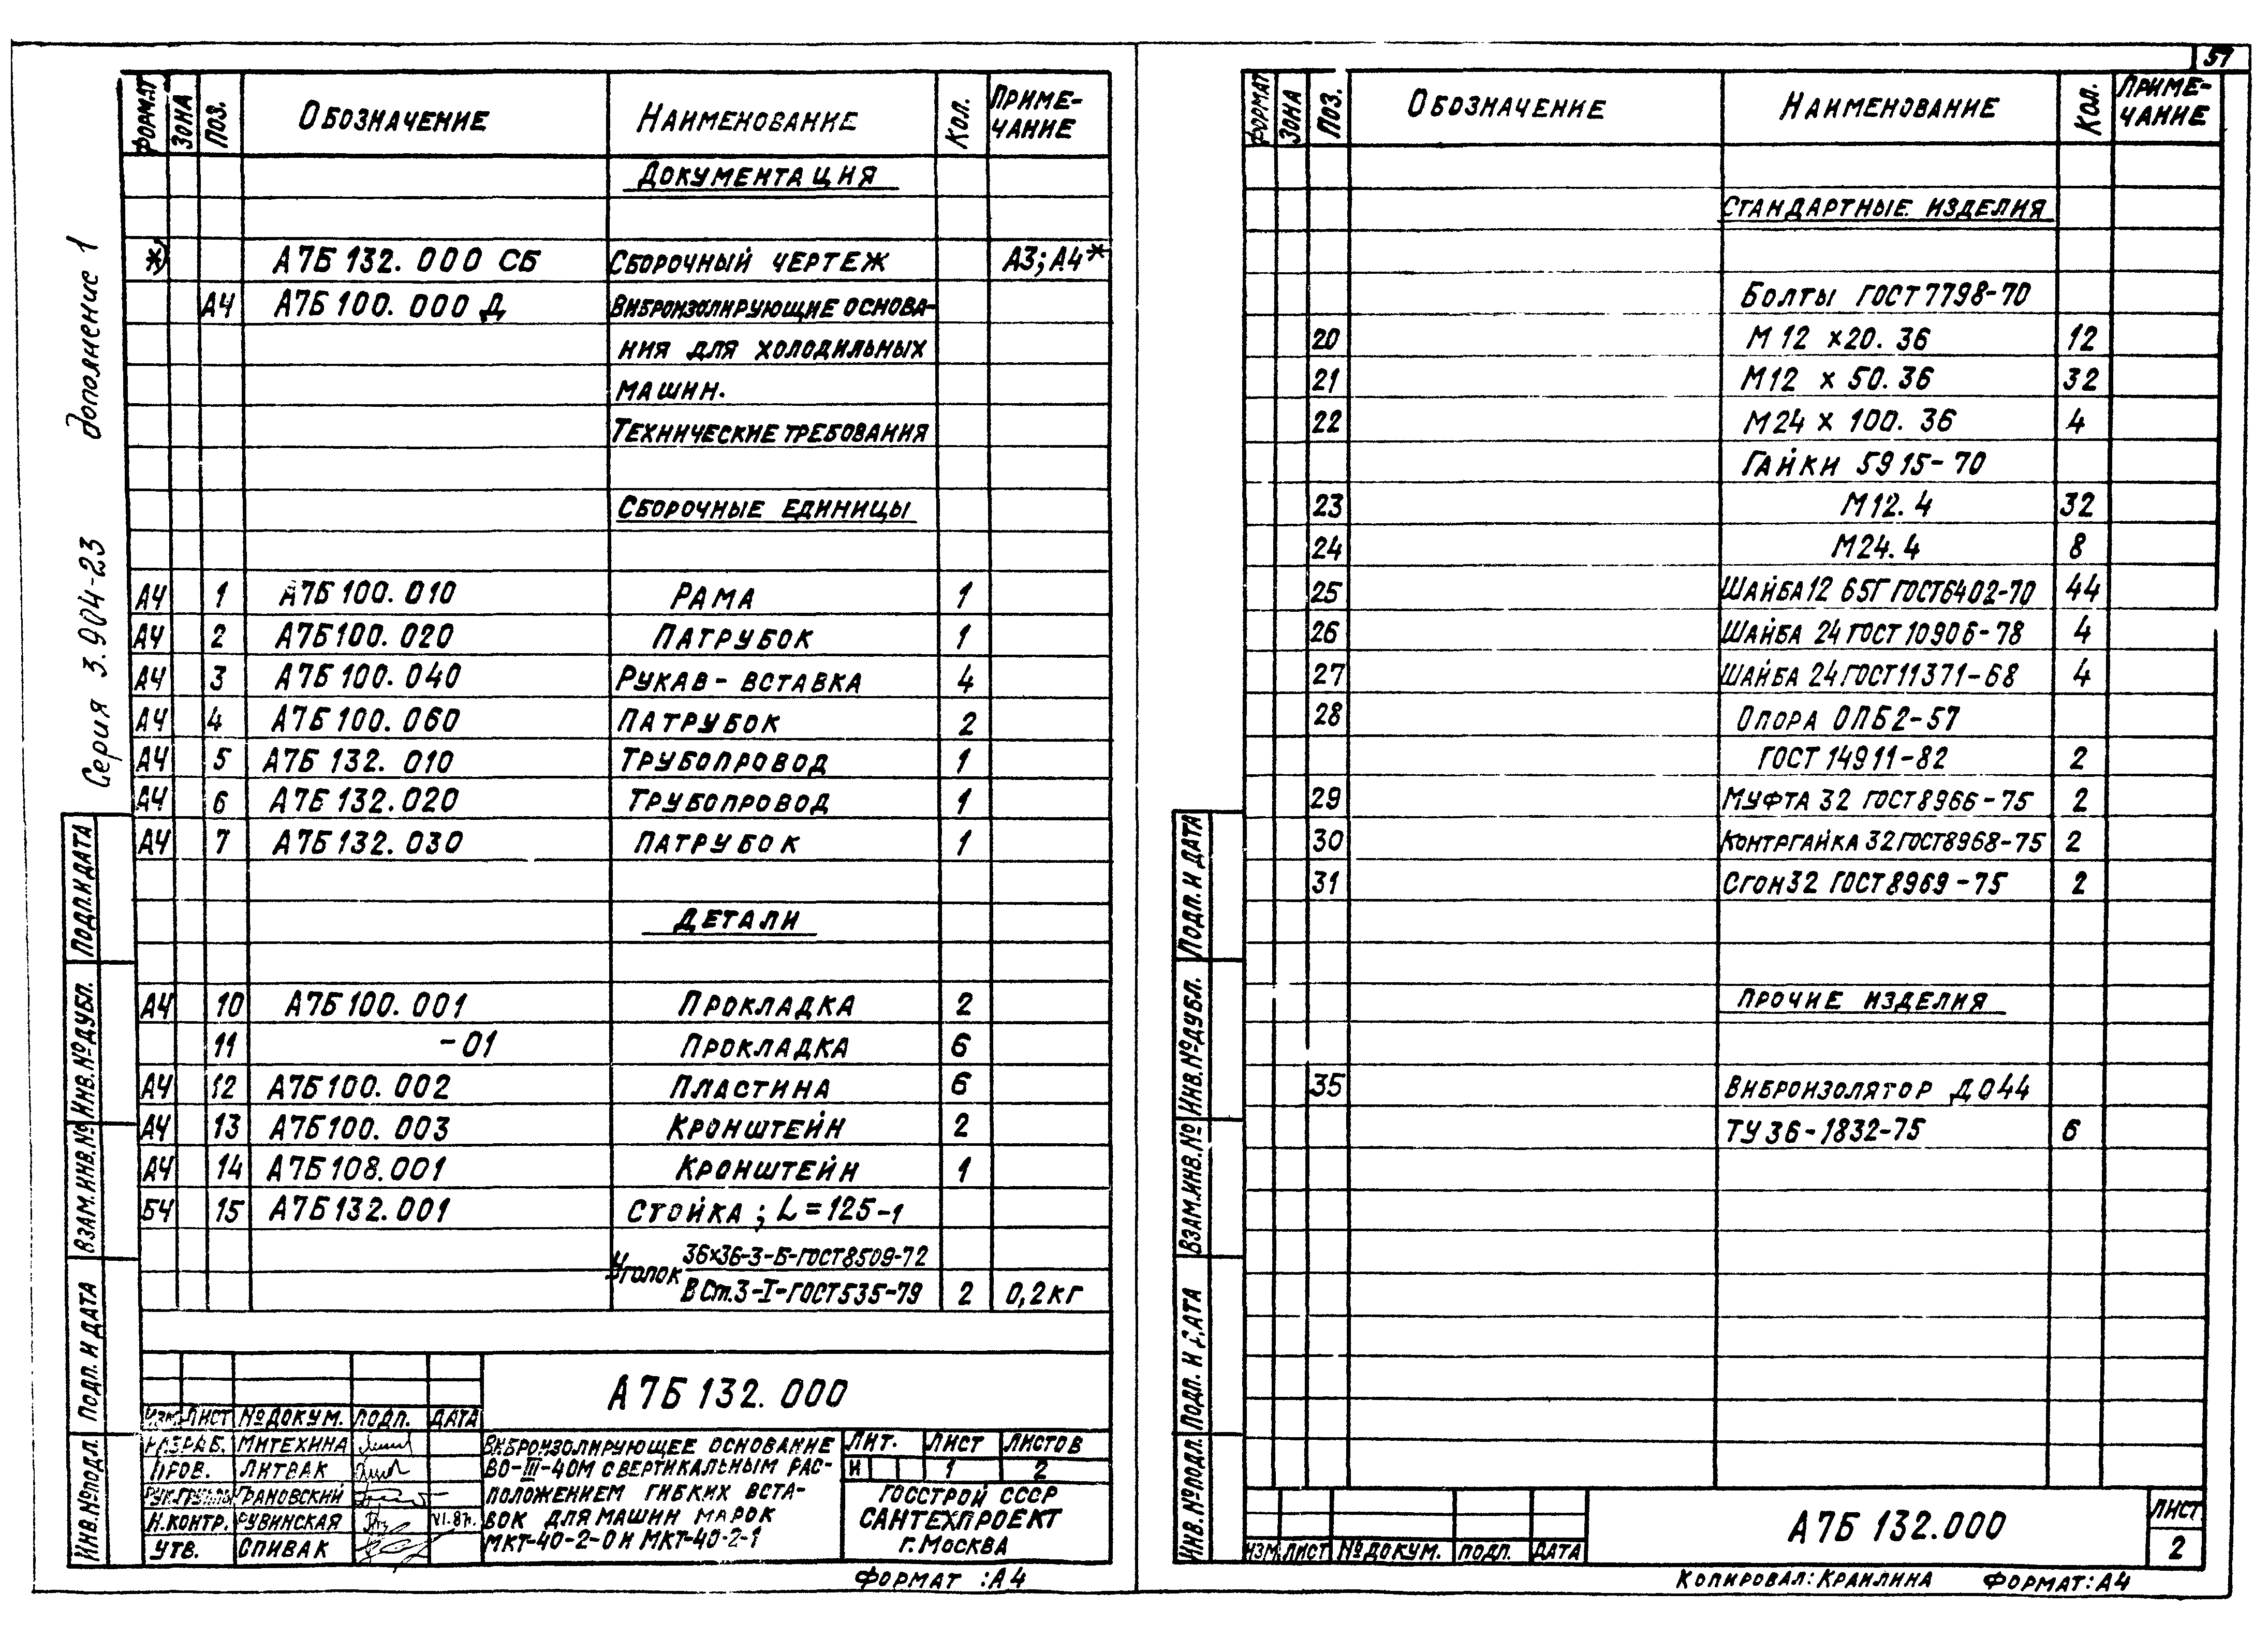 57
Серия 3.904-23 дополнение 1
ФОРМАТ ЗОНА ПОЗ. ОБОЗНАЧЕНИЕ НАИМЕНОВАНИЕ КОЛ. ПРИМЕ-
ЧАНИЕ
ДОКУМЕНТАЦИЯ
*) А7Б 132.000 СБ СБОРОЧНЫЙ ЧЕРТЕЖ А3; А4*
А4 А7Б 100.000 Д ВИБРОИЗОЛИРУЮЩИЕ ОСНОВА-
НИЯ ДЛЯ ХОЛОДИЛЬНЫХ
МАШИН.
ТЕХНИЧЕСКИЕ ТРЕБОВАНИЯ
СБОРОЧНЫЕ ЕДИНИЦЫ
А4 1 А7Б 100.010 РАМА 1
А4 2 А7Б 100.020 ПАТРУБОК 1
А4 3 А7Б 100.040 РУКАВ-ВСТАВКА 4
А4 4 А7Б 100.060 ПАТРУБОК 2
А4 5 А7Б 132.010 ТРУБОПРОВОД 1
А4 6 А7Б 132.020 ТРУБОПРОВОД 1
А4 7 А7Б 132.030 ПАТРУБОК 1
ДЕТАЛИ
А4 10 А7Б 100.001 ПРОКЛАДКА 2
11 -01 ПРОКЛАДКА 6
А4 12 А7Б 100.002 ПЛАСТИНА 6
А4 13 А7Б 100.003 КРОНШТЕЙН 2
А4 14 А7Б 108.001 КРОНШТЕЙН 1
БЧ 15 А7Б 132.001 СТОЙКА; L=125-1
УГОЛОК 36×36-3-Б-ГОСТ 8509-72
В Ст.3-I-ГОСТ 535-79 2 0,2кг
ПОДП. И ДАТА
ИНВ.№ ДУБЛ.
ВЗАМ.ИНВ.№
ПОДП. И ДАТА
ИНВ.№ ПОДЛ.
А7Б 132.000
ИЗМ. ЛИСТ № ДОКУМ. ПОДП. ДАТА
РАЗРАБ. МИТЕХИНА
ПРОВ. ЛИТВАК
РУК.ГРУППЫ ГРАНОВСКИЙ
Н.КОНТР. РУВИНСКАЯ VI.87г.
УТВ. СПИВАК
ВИБРОИЗОЛИРУЮЩЕЕ ОСНОВАНИЕ
ВО-III-40М С ВЕРТИКАЛЬНЫМ РАС-
ПОЛОЖЕНИЕМ ГИБКИХ ВСТА-
ВОК ДЛЯ МАШИН МАРОК
МКТ-40-2-0 И МКТ-40-2-1
ЛИТ. ЛИСТ ЛИСТОВ
И 1 2
ГОССТРОЙ СССР
САНТЕХПРОЕКТ
г. МОСКВА
ФОРМАТ :А4
ФОРМАТ ЗОНА ПОЗ. ОБОЗНАЧЕНИЕ НАИМЕНОВАНИЕ КОЛ. ПРИМЕ-
ЧАНИЕ
СТАНДАРТНЫЕ ИЗДЕЛИЯ
БОЛТЫ ГОСТ 7798-70
20 М12 ×20.36 12
21 М12 × 50.36 32
22 М24 × 100.36 4
ГАЙКИ 5915-70
23 М12.4 32
24 М24.4 8
25 ШАЙБА 12 65Г ГОСТ 6402-70 44
26 ШАЙБА 24 ГОСТ 10906-78 4
27 ШАЙБА 24 ГОСТ 11371-68 4
28 ОПОРА ОПБ2-57
ГОСТ 14911-82 2
29 МУФТА 32 ГОСТ 8966-75 2
30 КОНТРГАЙКА 32 ГОСТ 8968-75 2
31 СГОН 32 ГОСТ 8969-75 2
ПРОЧИЕ ИЗДЕЛИЯ
35 ВИБРОИЗОЛЯТОР ДО44
ТУ 36-1832-75 6
ПОДП. И ДАТА
ИНВ.№ ДУБЛ.
ВЗАМ.ИНВ.№
ПОДП. И ДАТА
ИНВ.№ ПОДЛ.
ИЗМ. ЛИСТ № ДОКУМ. ПОДП. ДАТА
А7Б 132.000
ЛИСТ
2
КОПИРОВАЛ: КРАИЛИНА ФОРМАТ: А4